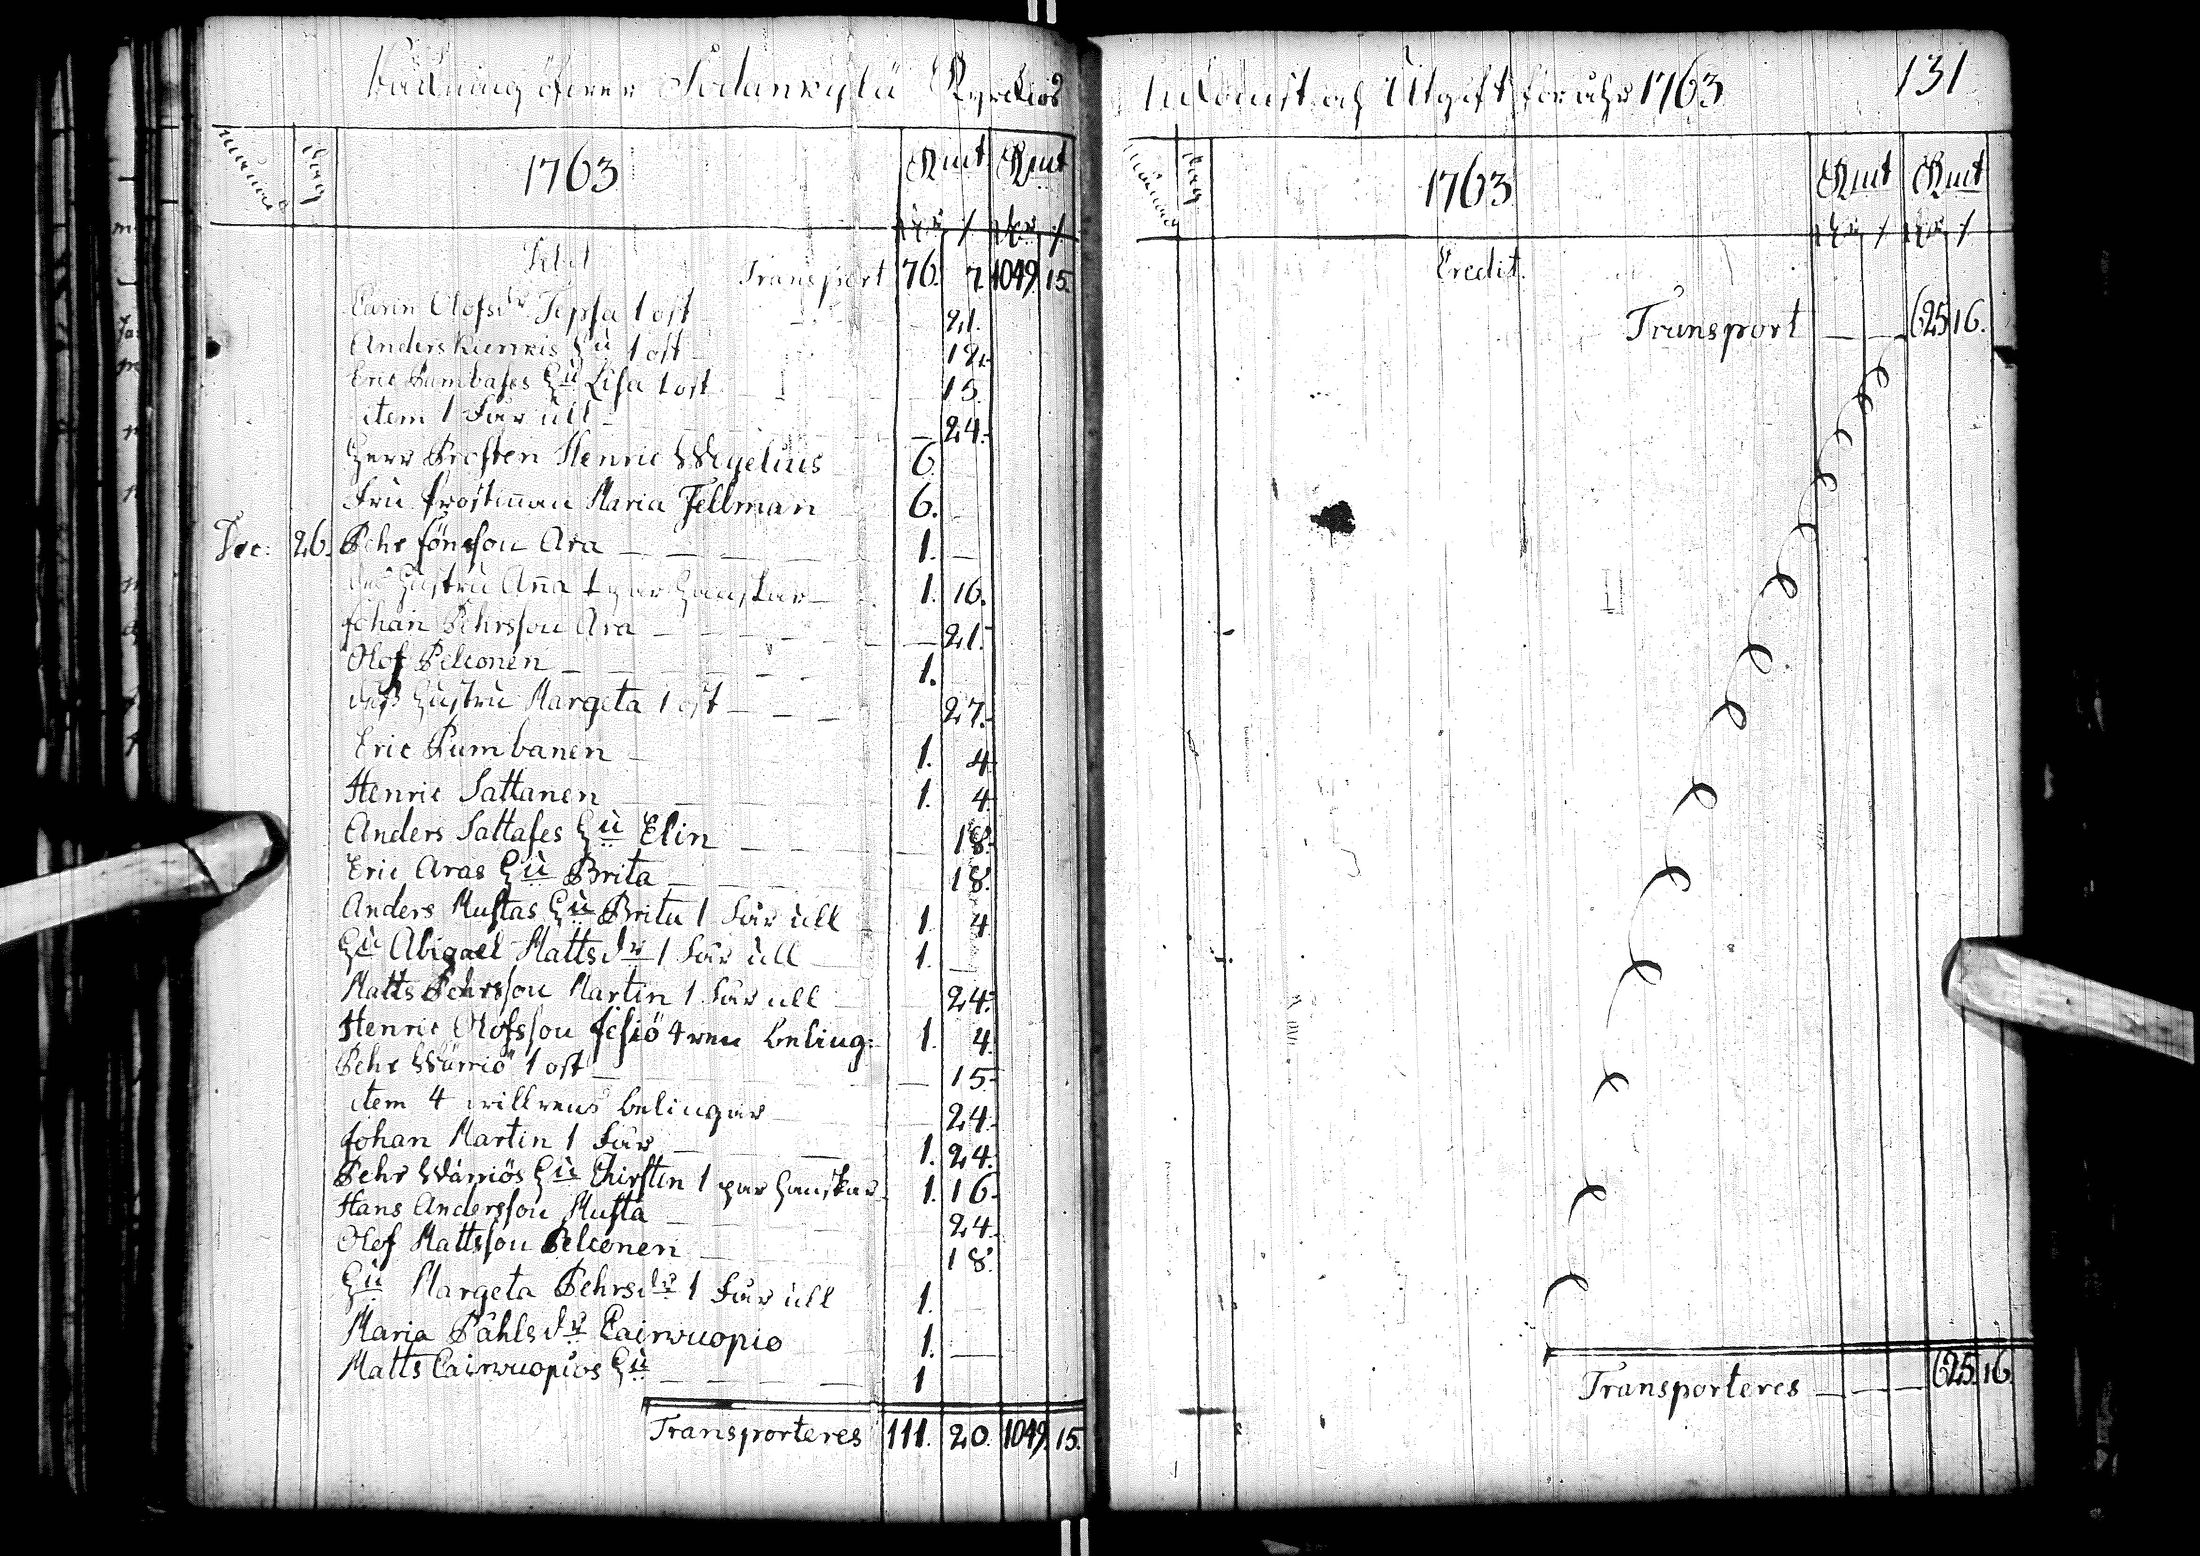 Räkning öfwer Sodankylä Kyrckios
månad dag 1763 Kmt Kmt
Debet
Transport 76. 7. 1049. 15.
Carin Olofsdr Jepsa 1 ost 21.
Anders Kierikis Hu 1 ost 12.
Eric Pumbases Hu Lisa 1 ost 15.
item 1 Får ull 24.
Herr Prosten Henric Wegelius 6.
Fru Prostinnan Maria Fellman 6.
Dec: 26. Pehr Jönsson Ara 1.
des Hustru Anna 1 par Handskar 1. 16.
Johan Pehrsson Ara 21.
Olof Pelconen 1.
dess Hustru Margeta 1 ost 27.
Eric Pumbanen 1. 4.
Henric Sattanen 1. 4.
Anders Sattases Hu Elin 18.
Eric Aras Hu Brita 18.
Anders Mustas Hu Brita 1 Får ull 1. 4
Hu Abigael Mattsdr 1 Får ull 1.
Matts Pehrsson Martin 1 Får ull 24.
Henric Olofsson Jesiö 4 ren beling: 1. 4.
Pehr Wärriö 1 ost 15.
item 4 willrens belingar 24.
Johan Martin 1 Får 1. 24.
Pehr Wärriös Hu Chirstin 1 par Handskar 1. 16.
Hans Andersson Musta 24.
Olof Mattsson Pelconen 18.
Hu Margeta Pehrsdr 1 Får ull 1.
Maria Påhlsdr Cairwuopio 1.
Matts Cairwuopios Hu 1
Transporteres 111. 20. 1049. 15.
Inkomst och Utgift för åhr 1763 131
månad dag 1763 Kmt Kmt
Credit.
Transport 625 16.
Transporteres 625. 16.